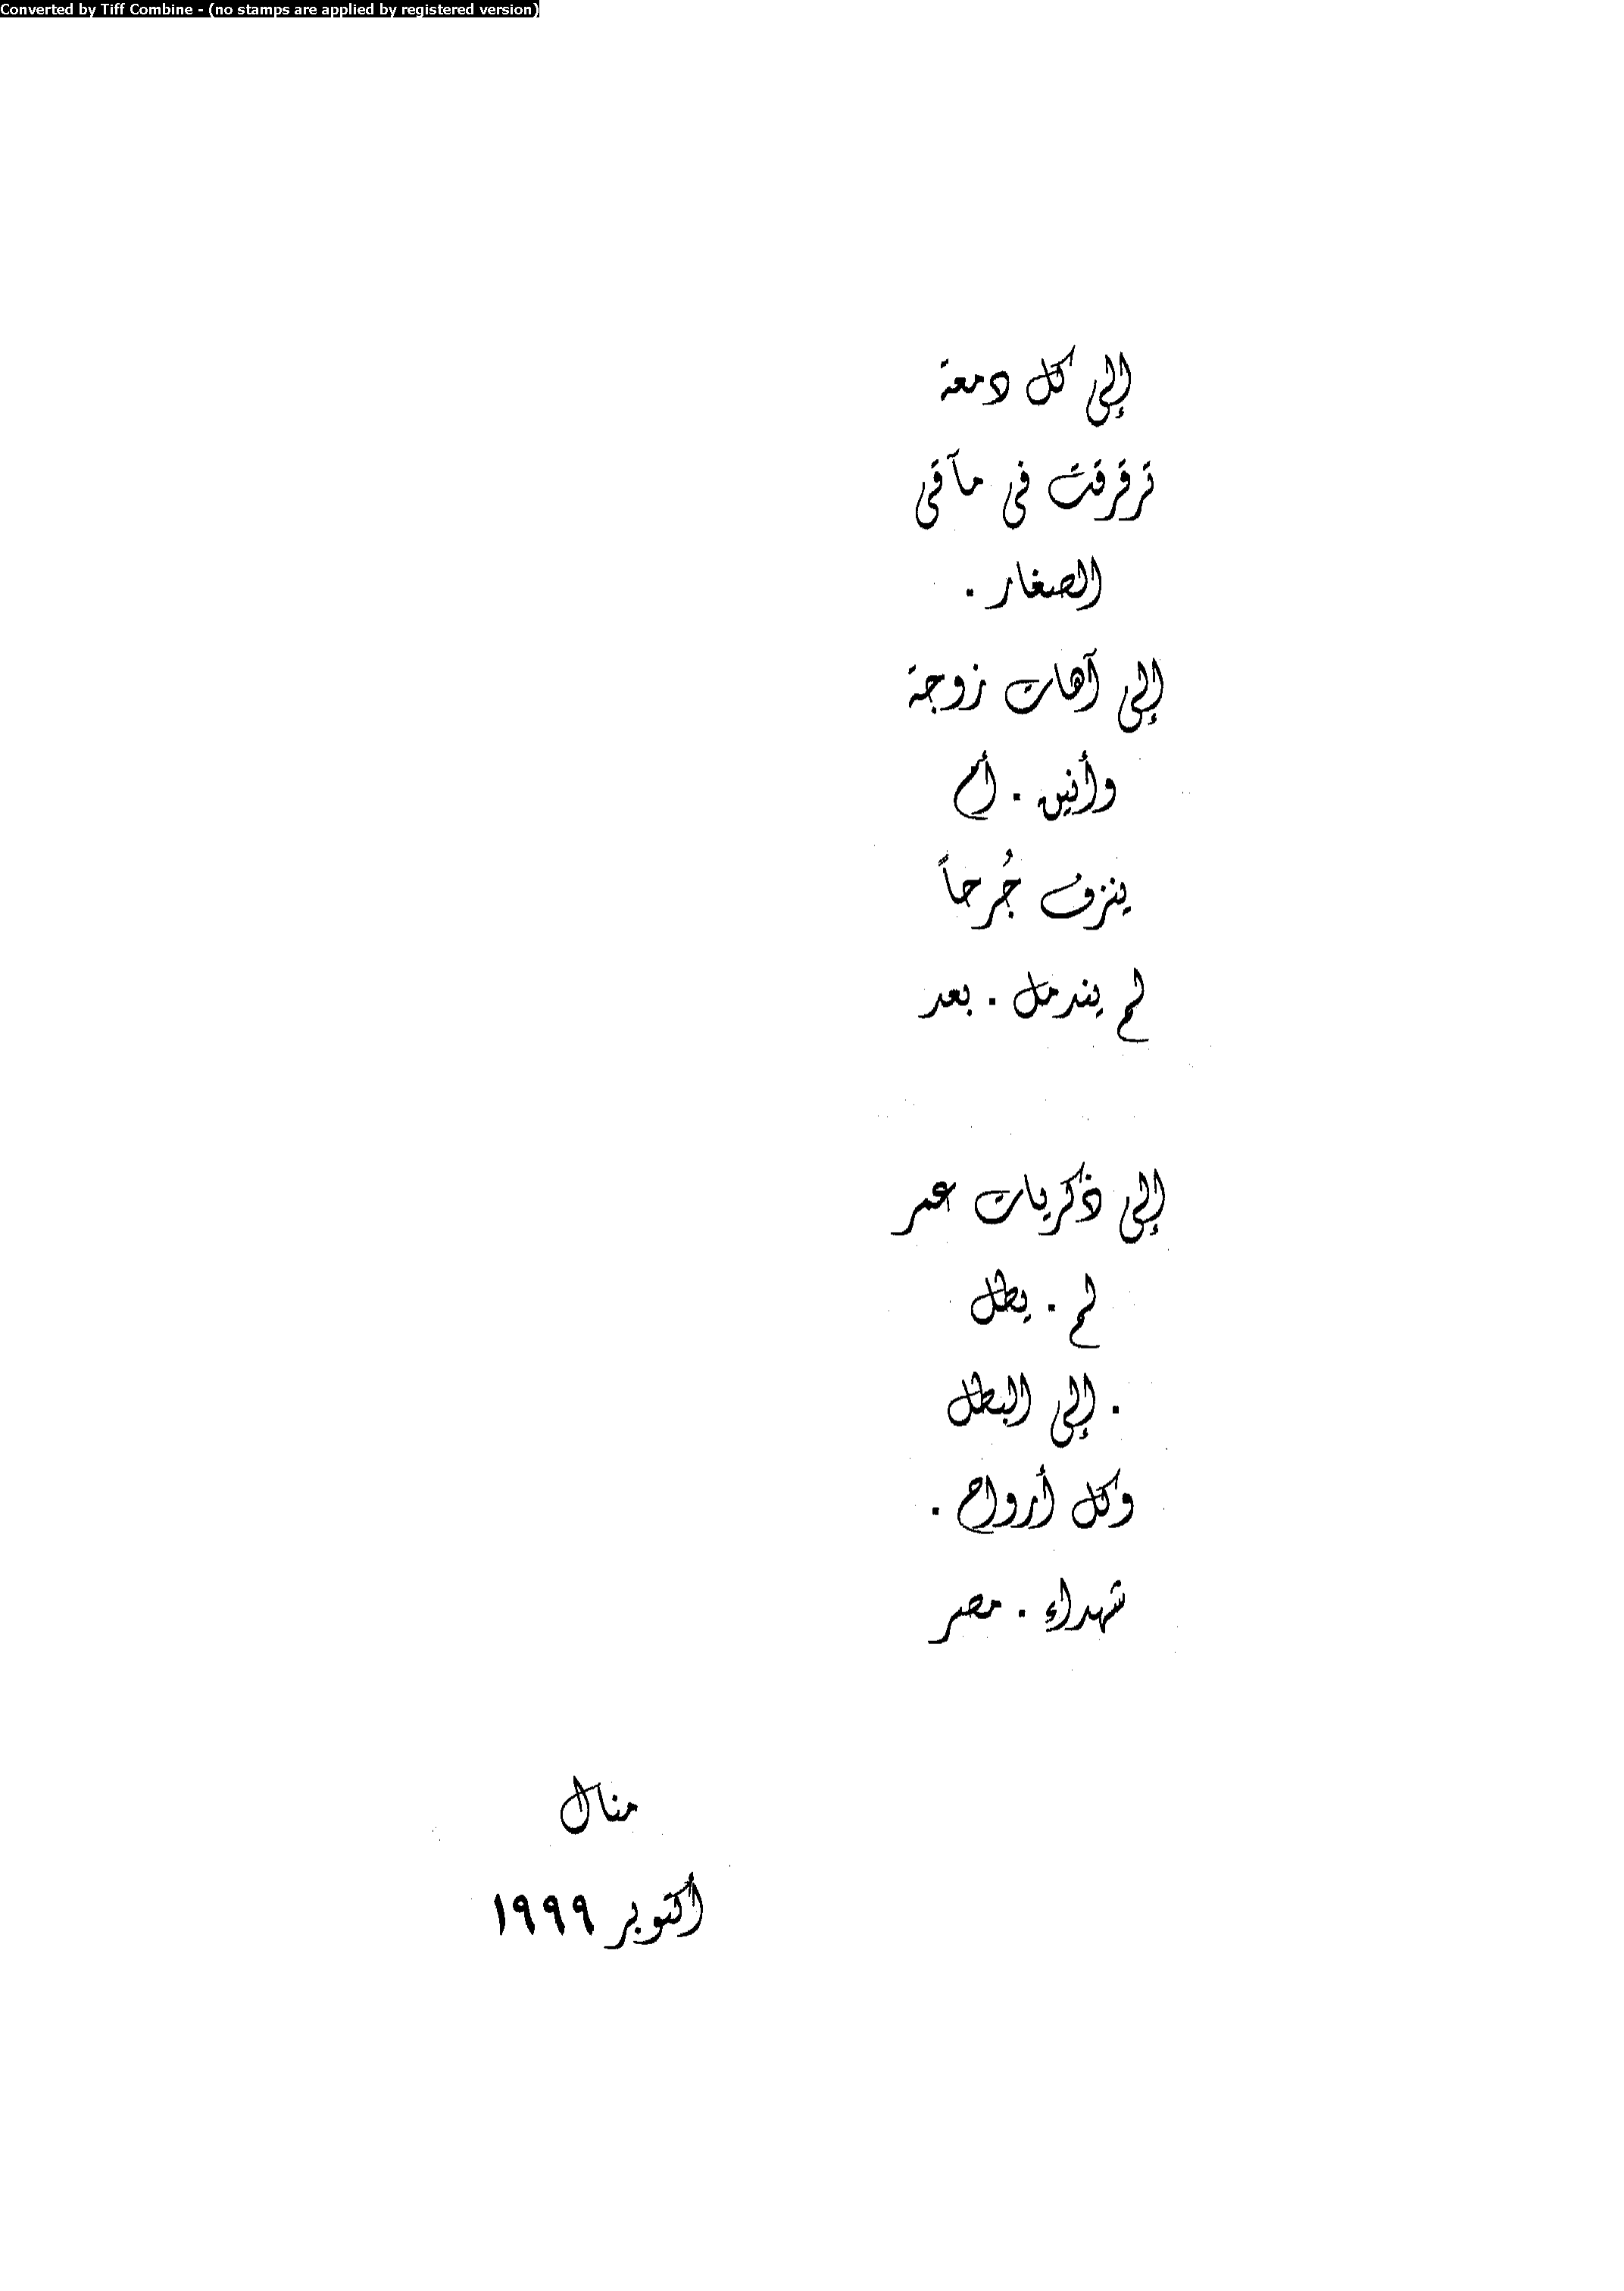 Converted by Tiff Combine - (no stamps are applied by registered version)
إلى كل دمعة
ترقرقت فى مآقى
الصغار .
إلى آهات زوجة
وأنين . أم
ينزف جُرحاً
لم يندمل . بعد
إلى ذكريات عمر
لم . يطل
. إلى البطل
وكل أرواح .
شهداء . مصر
منال
أكتوبر ١٩٩٩